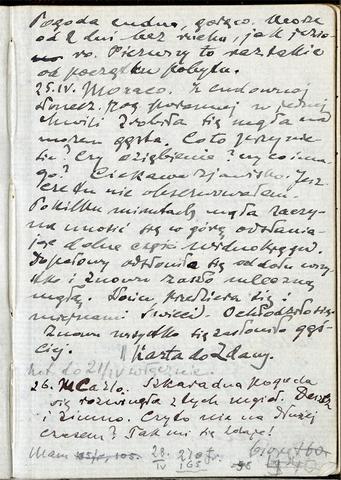 Pogoda cudna, gorąco. Morze
od 2 dni bez ruchu, jak jezio-
ro. Pierwszy to raz takie
od początku pobytu.
25.IV. Monaco. Z cudownej
słonecz. pog. porannej w jednej
chwili zrobiła się mgła nad
morzem gęsta. Co to
Czy oziębienie? czy co inne-
go? Ciekawe zjawisko. Jesz-
cze tu nie obserwowałem.
Po kilku minutach mgła zaczy-
na unosić się w górę odsłania-
jąc dolne części widnokręgu.
Do połowy odsłonia się od dołu wszy-
stko i znowu zaszło mleczną
mgłą. Słońce przedziera się i
świeci. Ochłodziło się.
Znowu wszystko się zasłoniło gęś-
ciej. || Karta do Zdany.
do 21/IV włącznie.
26. M Carlo. Szkaradna pogoda
się rozwinęła z tych mgieł. Deszcz
i zimno. Czy to nie na dłużej
czasem? Tak mi się zdaje!
Mam 28/IV 270 fr.
165